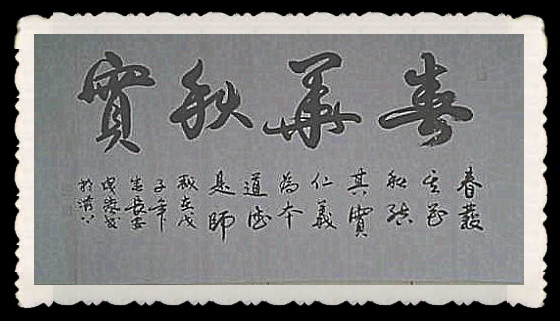 春華秋實
春發
其花
秋結
其實
仁義
為本
道德
是師
歲在戊
子年
長安